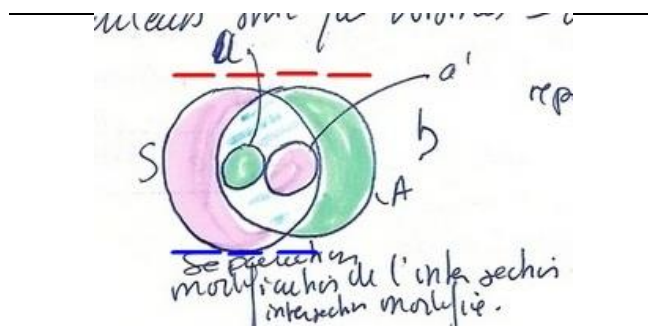 a
a'
rep
S
b
A
Separation
modification de l'intersection
intersection modifiée.